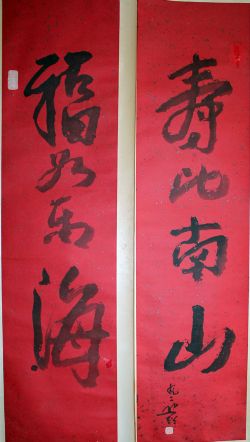 寿比南山
福如东海